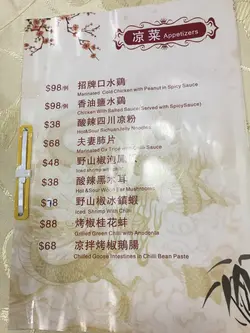 凉菜 Appetizers
$98/例 招牌口水鷄
Marinated Cold Chicken with Peanut in Spicy Sauce
$98/例 香油鹽水鷄
Chicken With Salted Sauce( Served with SpicySauce)
$38 酸辣四川凉粉
Hot&Sour Sichuan Jelly Noodles
$68 夫妻肺片
Marinated Ox Tripe with Chilli Sauce
$48 野山椒
Iced with Chilli
$38 酸辣黑木耳
Hot &Sour Wood Ear Mushrooms
野山椒冰鎮蝦
Iced Shrimp With Chilli
$88 烤椒桂花蚌
Grilled Green Chilli with
$68 凉拌烤椒鵝腸
Chilled Goose Intestines in Chilli Bean Paste